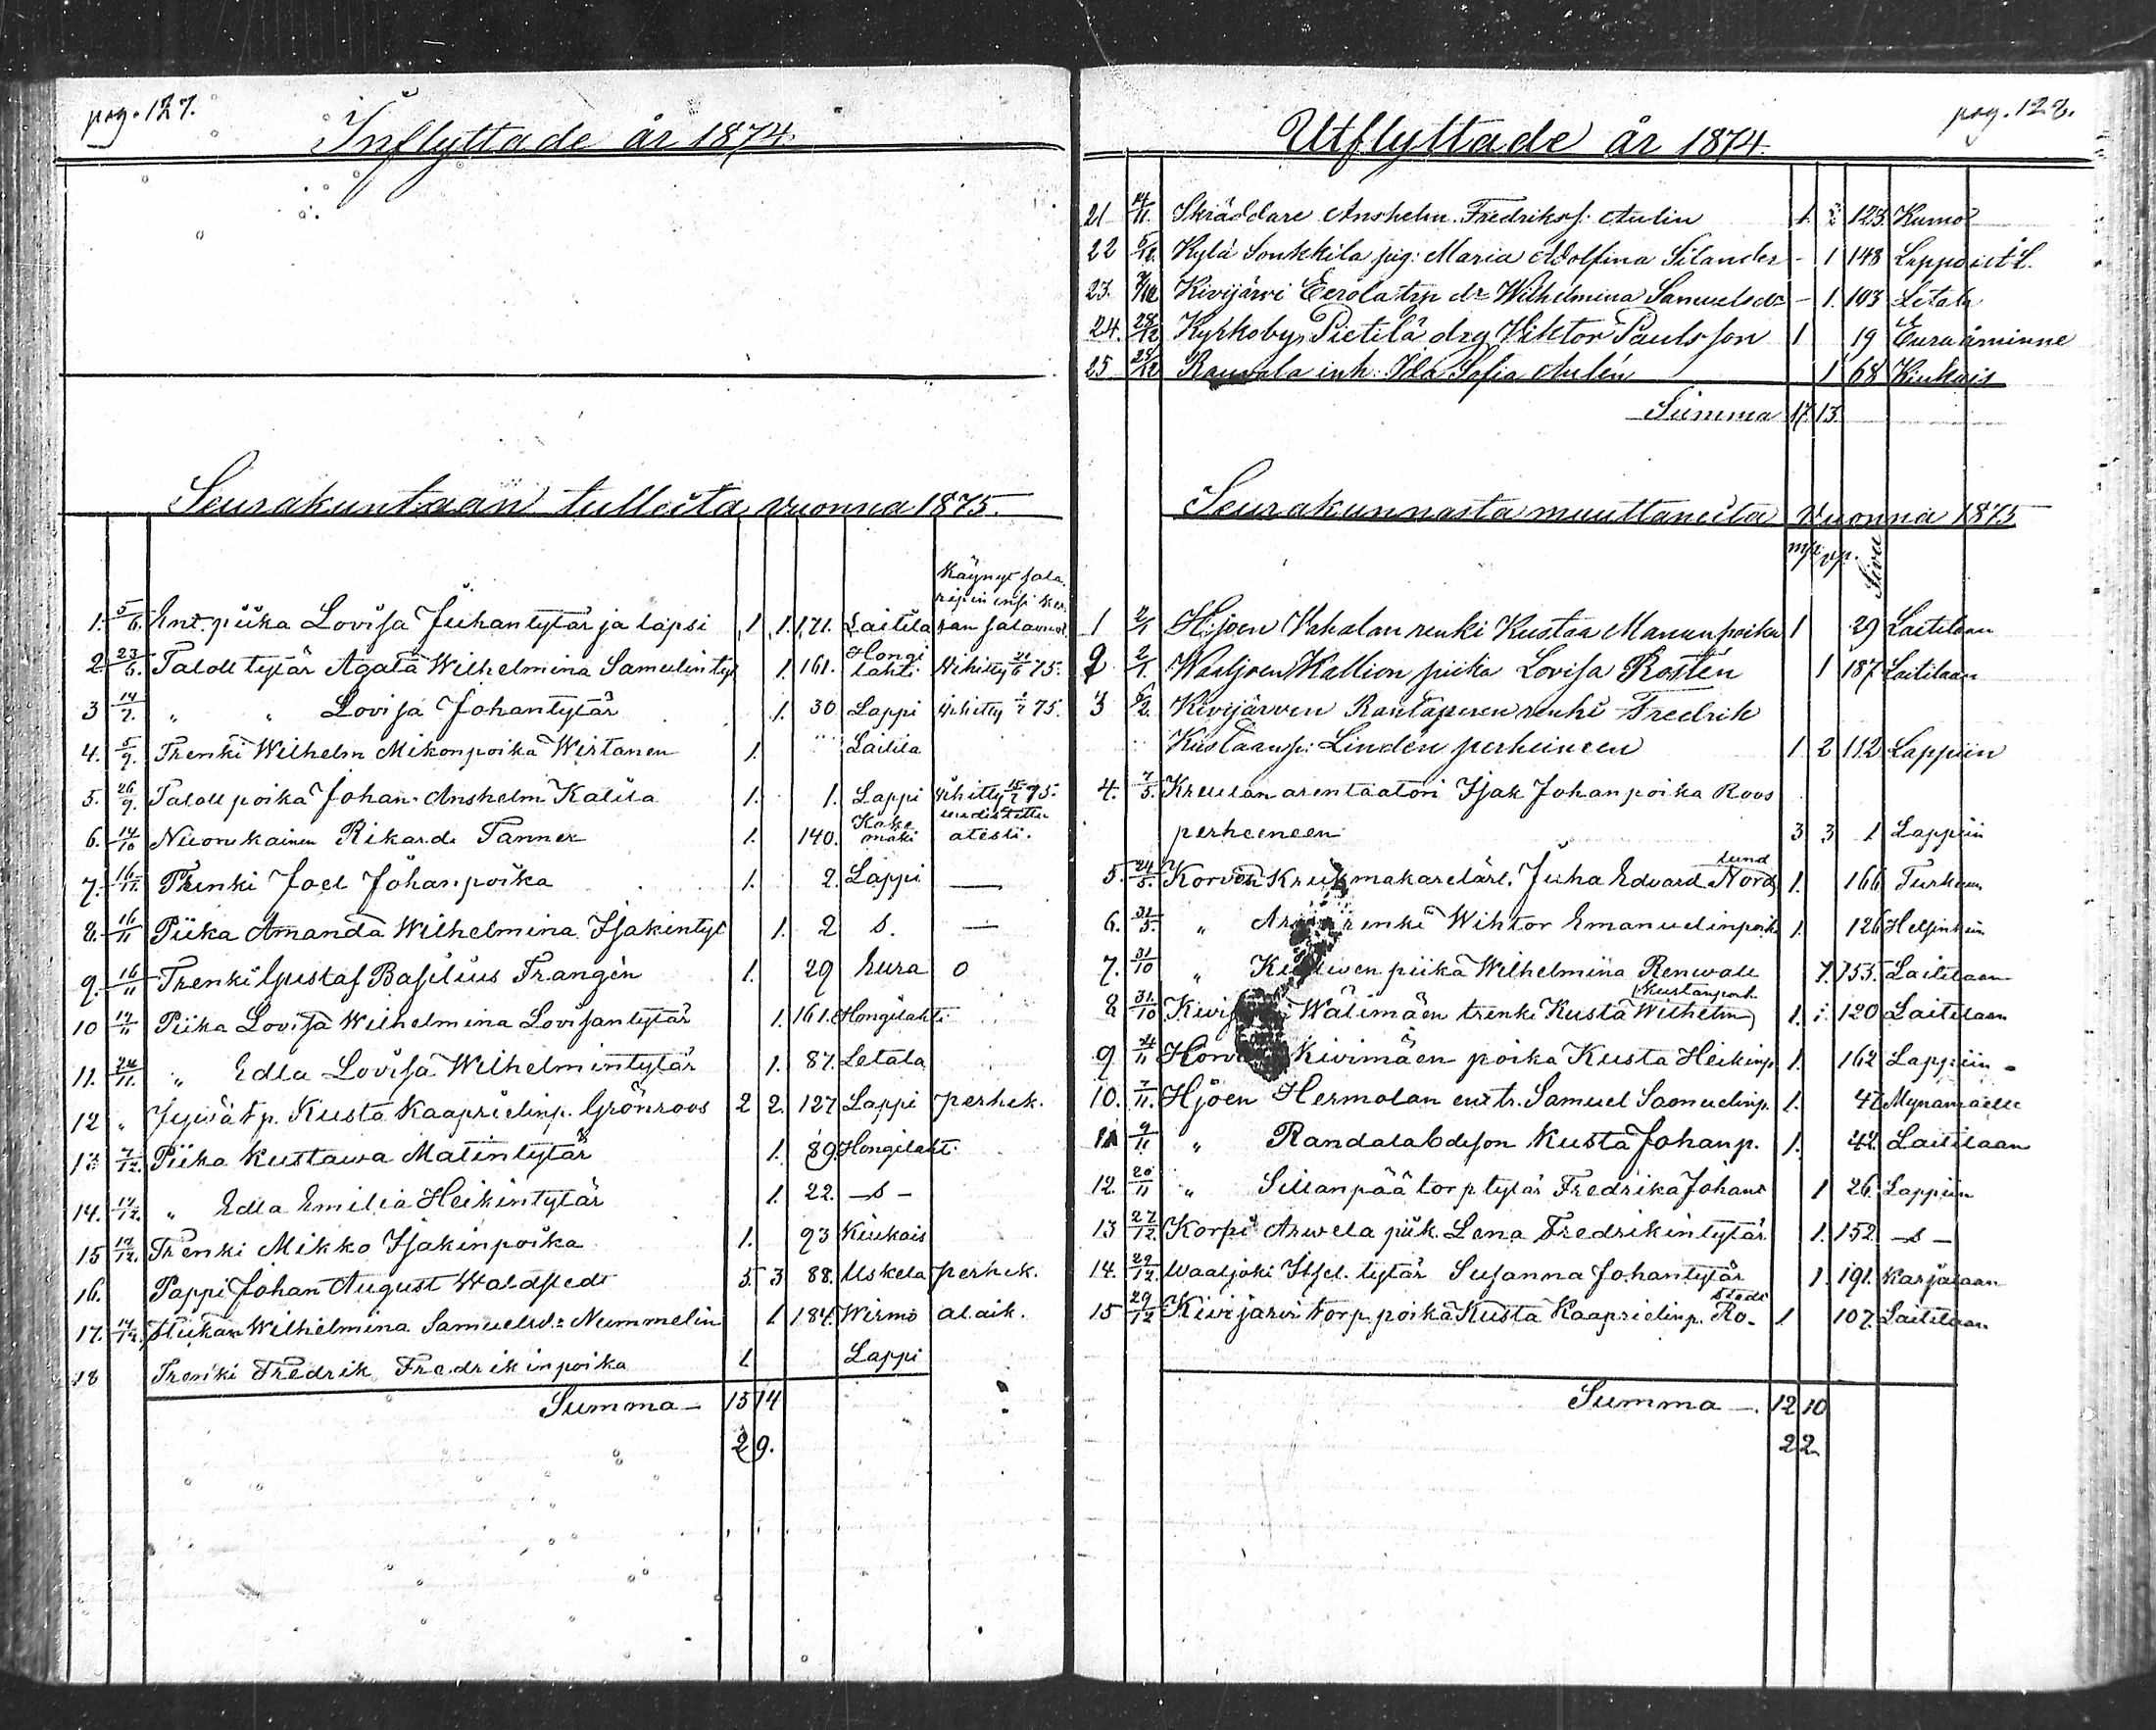 pag. 127.
Inflyttade år 1874.
Seurakuntaan tulleita vuonna 1875.
Käynyt
1. 5/6. Ent. piika Lovisa Juhantytär ja lapsi 1 1. 171. Laitila
2. 23/6. Taloll tytär Agata Wilhelmina Samulintyt 1. 161. Hongilahti Vihitty 21/6 75.
3 14/7. " " Lovisa Johantytär 1. 30 Lappi Vihitty 75.
4. 5/9. Trenki Wilhelm Mikonpoika Wirtanen 1. Laitila
5. 26/9. Taloll poika Johan Anshelm Katila 1. 1. Lappi vihitty 75.
6. 14/10 Nuorukainen Rikard Tanner 1. 140. Kakemäki atesti.
7. 16/11. Trenki Joel Johanpoika 1. 2. Lappi —
8. 16/11 Piika Amanda Wilhelmina Isakintyt 1. 2 s. —
9. 16/11 Trenki Gustaf Basilius Frangén 1. 29 Eura o
10 17/11 Piika Lovisa Wilhelmina Lovisantytär 1. 161. Hongilahti
11. 24/11. " Edla Lovisa Wilhelmintytär 1. 87. Letala
12 " Kusta Kaaprielinp. Grönroos 2 2. 127 Lappi perhek.
13 7/12. Piika Kustawa Matintytär 1. 89. Hongilaht.
14. 14/12. " Edla Emilia Heikintytär 1. 22. —s—
15 14/12. Trenki Mikko Isakinpoika 1. 93 Kiukais
16. Pappi Johan August Waldstedt 5. 3 88. Uskela perhek.
17. 14/12. Wilhelmina Samuelsd:r Nummelin 1 184. Wirmo alaik.
18 Trenki Fredrik Fredrikinpoika 1. Lappi
Summa — 15 14
29.
pag. 128.
Utflyttade år 1874.
21 14/11. Skräddare Anshelm Fredrikss. Aulin 1. 2 123. Kumo
22 5/12. Kylä Sonkkila pig: Maria Adolfina Silander - 1 148 Lappo
23. 7/12 Kivijärvi Eerola trp dr Wilhelmina Samuelsdr - 1. 103 Letala
24. 28/12 Kyrkoby Pietilä drg Viktor Paulsson 1 19 Euraåminne
25 28/12 Rauvala inh: Ida Sofia Aulén 1 68 Kiukais
Summa 17. 13.
Seurakunnasta muuttaneita vuonna 1875
mp. vp. Sivu
1 2/1 H:joen Vahalan renki Kustaa Manunpoika 1 29 Laitilaan
2 2/1. Waaljoen Kallion piika Lovisa Rostén 1 187 Laitilaan
3 6/2. Kivijärven Rantaperen renki Fredrik
Kustaanp: Lindén perheineen 1 2 112 Lappiin
4. 7/5. Kreulan arentaatori Isak Johanpoika Roos
perheeneen 3 3 1 Lappiin
lund
5. 24/5. Korven Kruk makarelärl. Juha Edvard Nord 1. 166 Turkuun
6. 31/5. " renki Wihtor Emanuelinpoik 1. 126 Helsinkiin
7. 31/10 " piika Wilhelmina Renwall 1. 155. Laitilaan
Kustanpoik.
8 31/10 Wälimäen trenki Kusta Wilhelm 1. 1. 120 Laitilaan
9 4/11 Kivimäen poika Kusta Heikinp. 1. 162 Lappiin
10. 7/11. Hjoen Hermolan ent tr. Samuel Samuelinp. 1. 47 Mynämäelle
11 9/11 " Randala Kusta Johanp. 1. 42 Laitilaan
12. 20/11 " Sillanpää torp. tytär Fredrika Johant 1 26. Lappiin
13 27/12. Korpi Arwela piik. Lena Fredrikintytär 1. 152. —s—
14. 29/12. Waaljoki Itsel. tytär Susanna Johantytär 1. 191. Karjalaan
stedt
15 29/12 Kivijärvi torp. poika Kusta Kaaprielinp. Ro- 1 107. Laitilaan
Summa —. 12 10
22